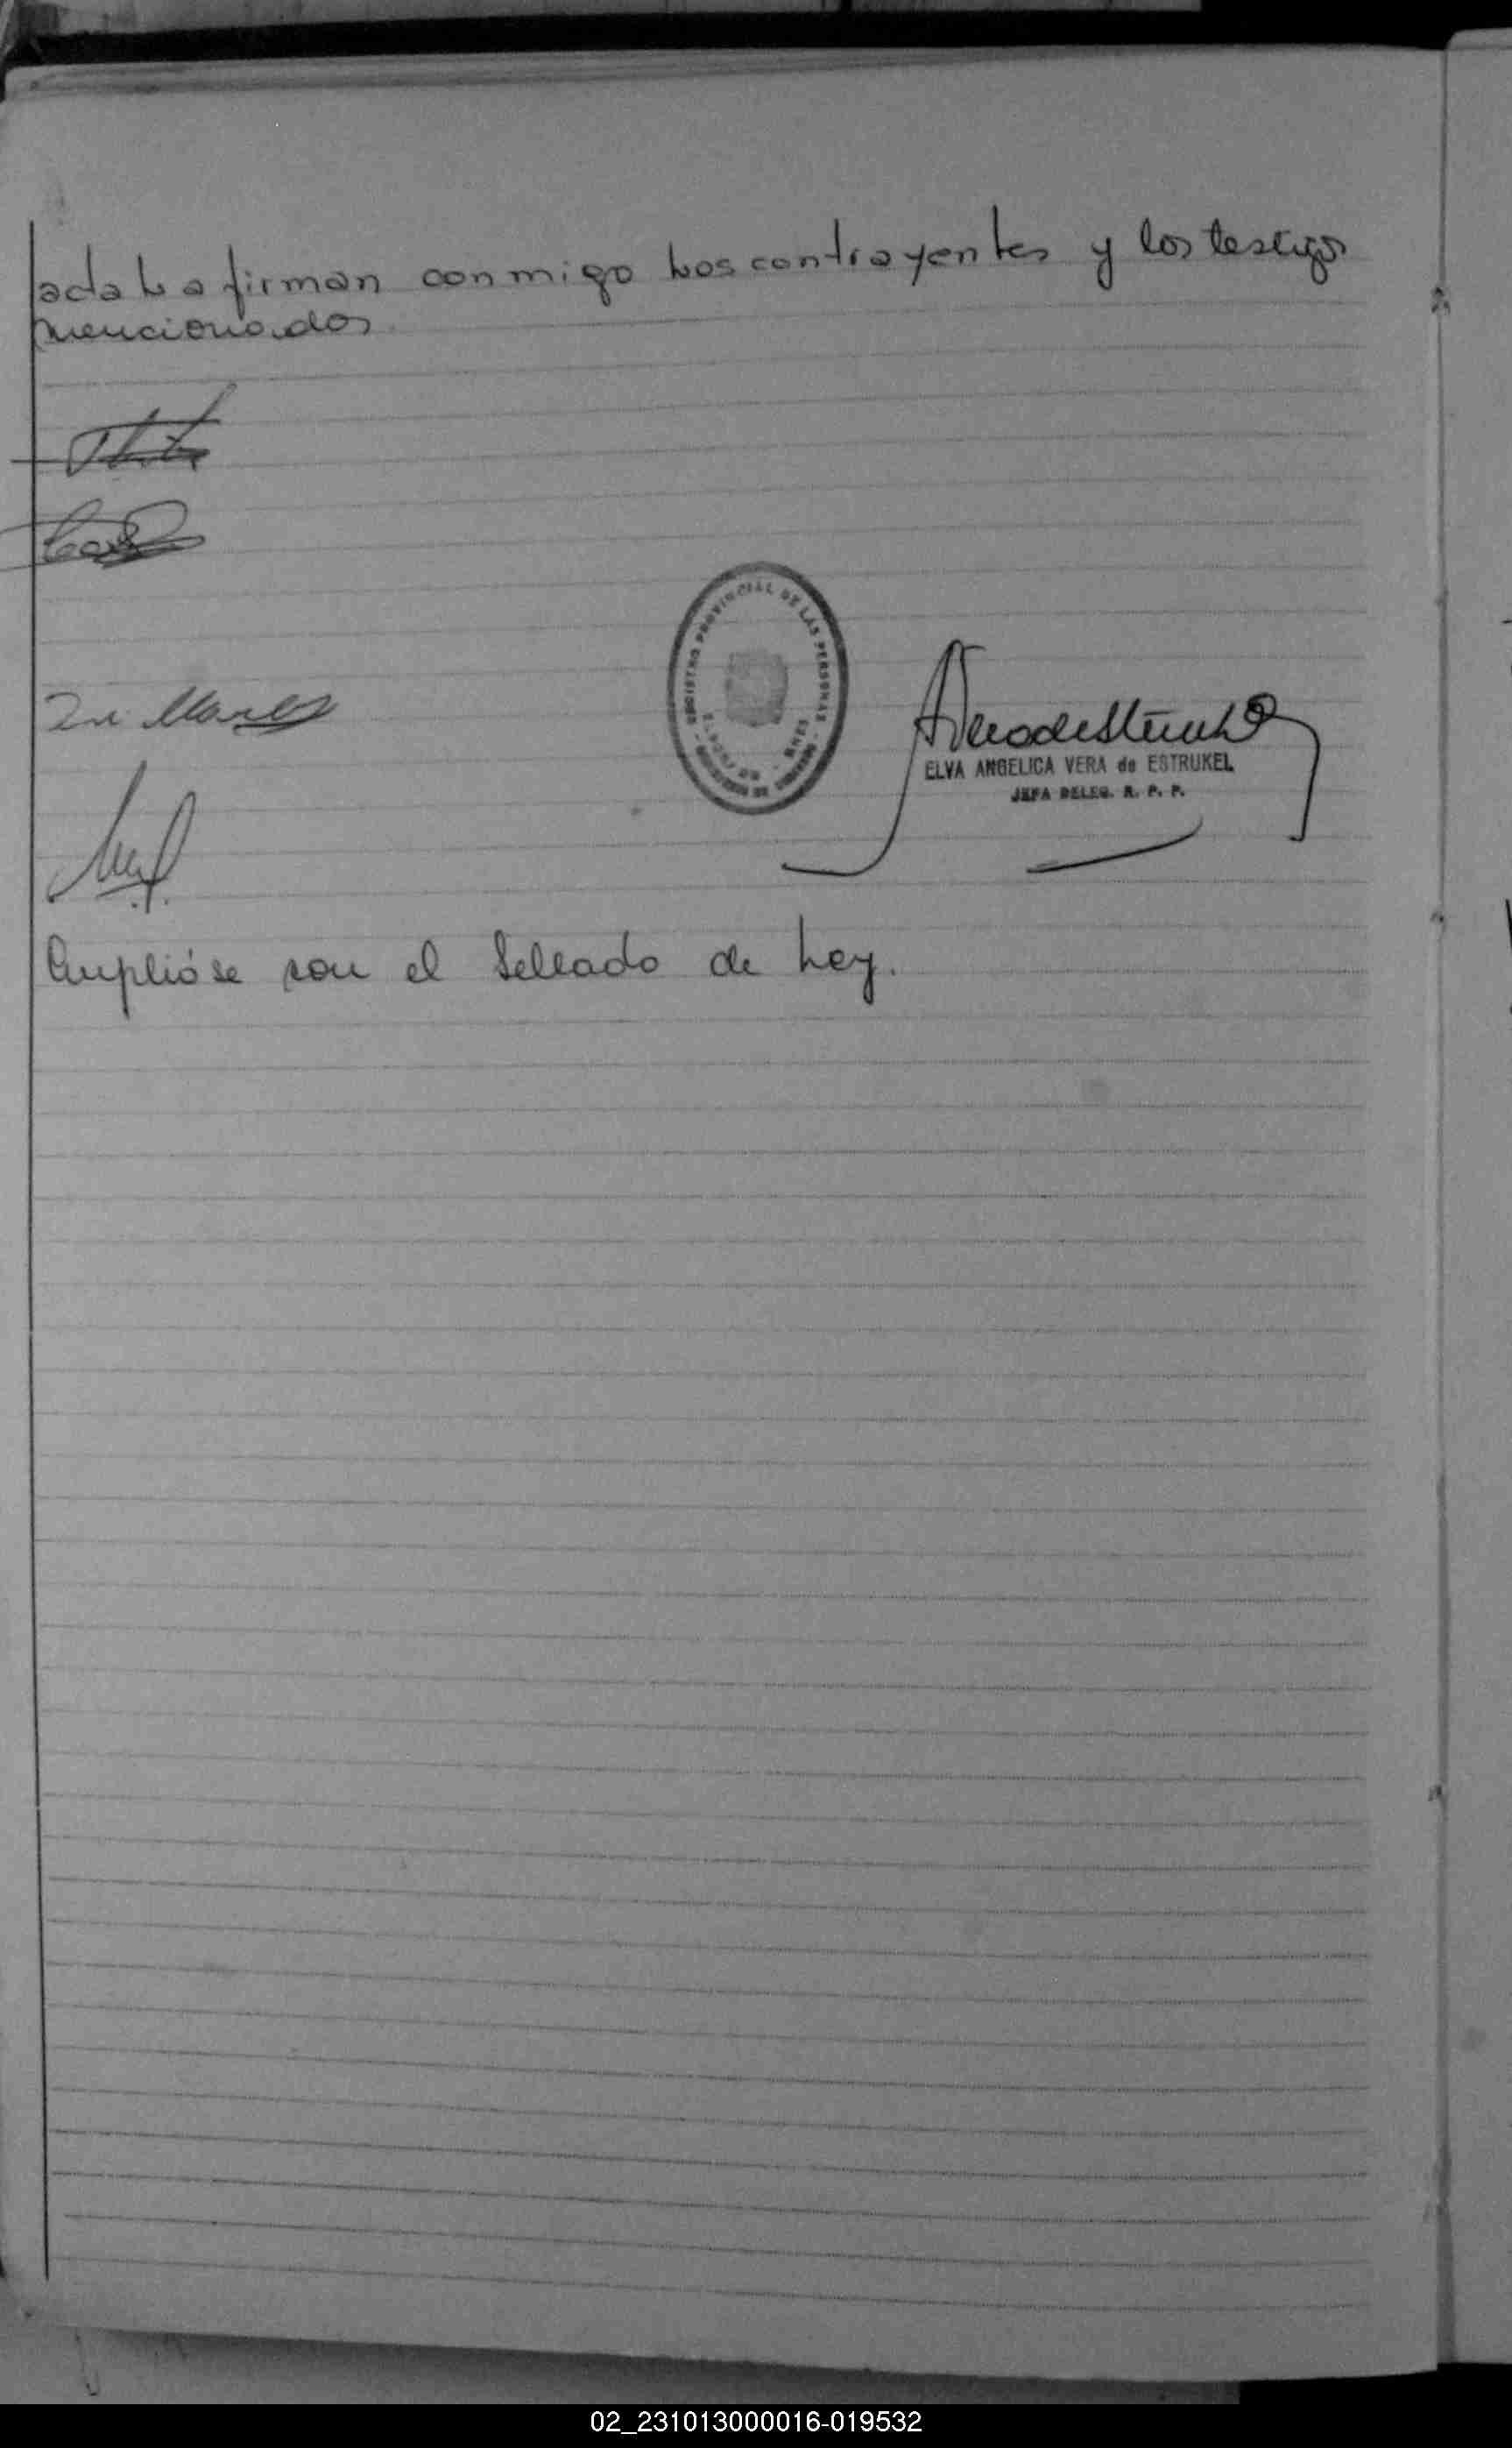 acta La firman conmigo Los contrayentes y los testigos
mencionados.
REGISTRO PROVINCIAL DE LAS PERSONAS
ELVA ANGELICA VERA de ESTRUKEL
JEFA DELEG. R. P. P.
Cumplióse con el Sellado de Ley.
02_231013000016-019532